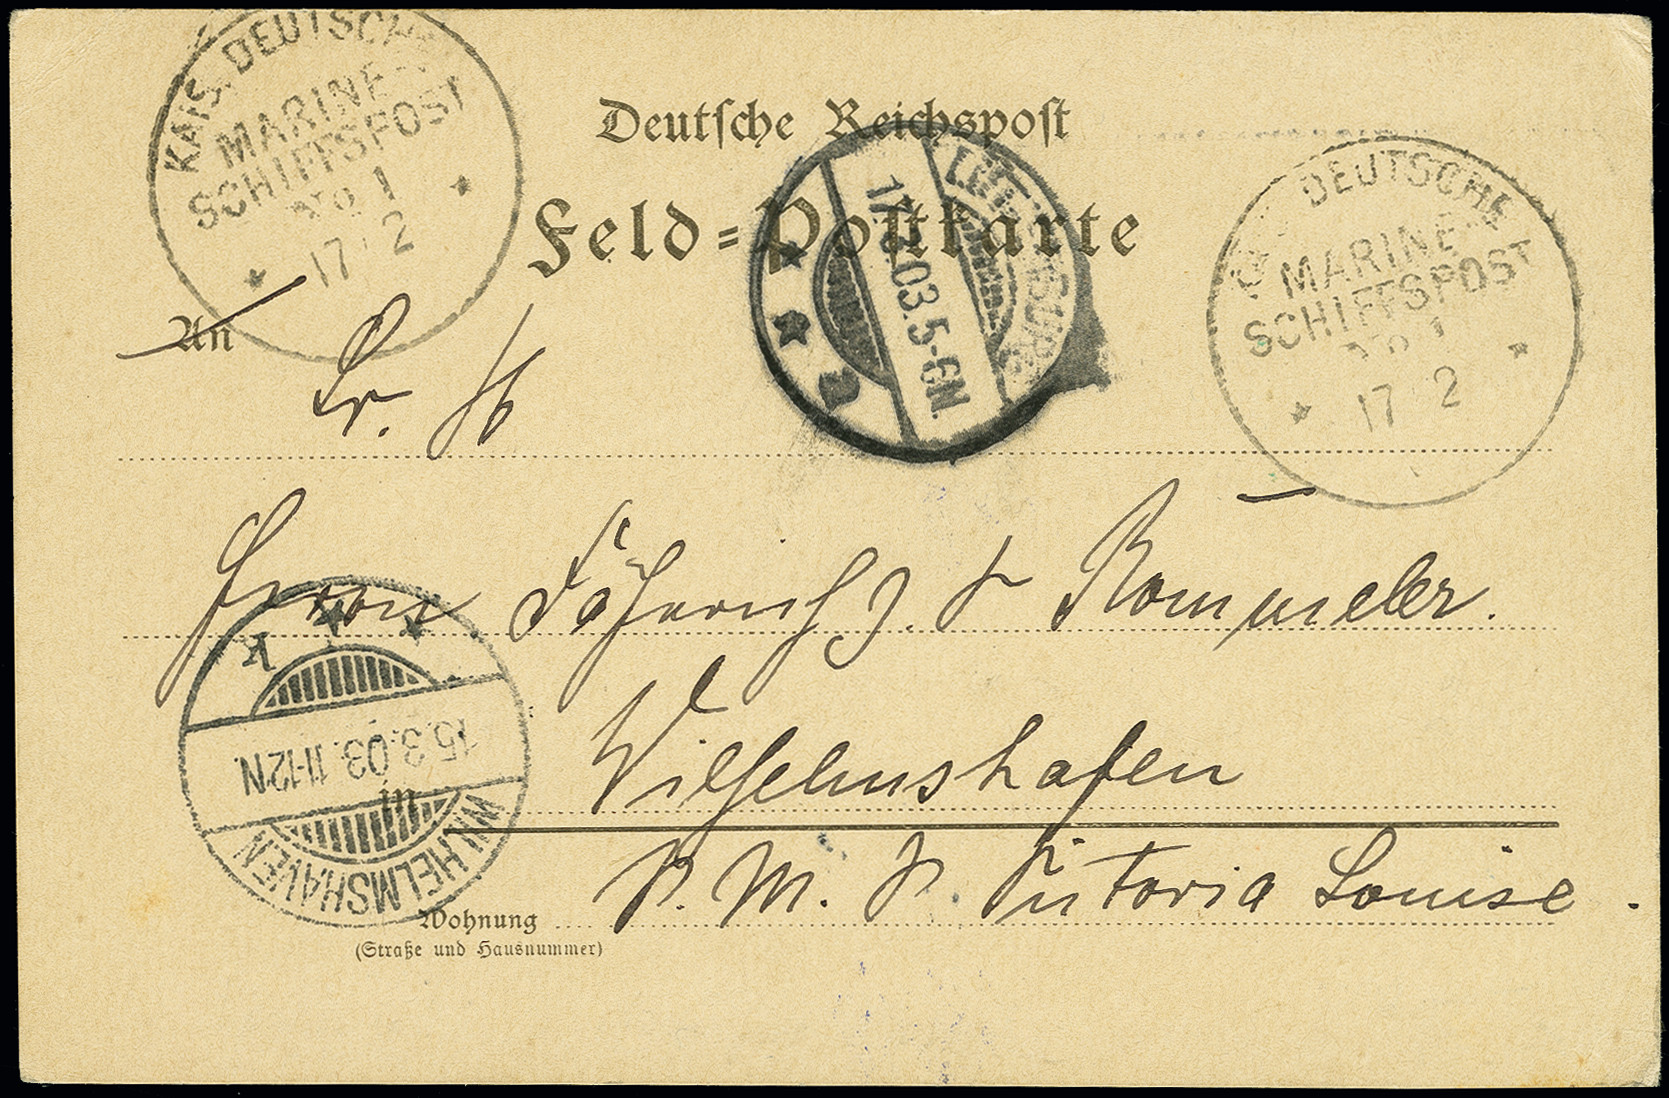 KAIS. DEUTSCHE
MARINE-
SCHIFFSPOST
No 1
17 2
Deutsche Reichspost
Feld=Postkarte
17. 03. 5-6N.
DEUTSCHE
MARINE-
SCHIFFSPOST
No 1
17 2
An
Sr. H
Herrn Fähnrich z. S Rommeler.
Wilhelmshafen
15.3.03. 11-12N.
in
WILHELMSHAVEN
S. M. S. Victoria Louise.
Wohnung
(Straße und Hausnummer)